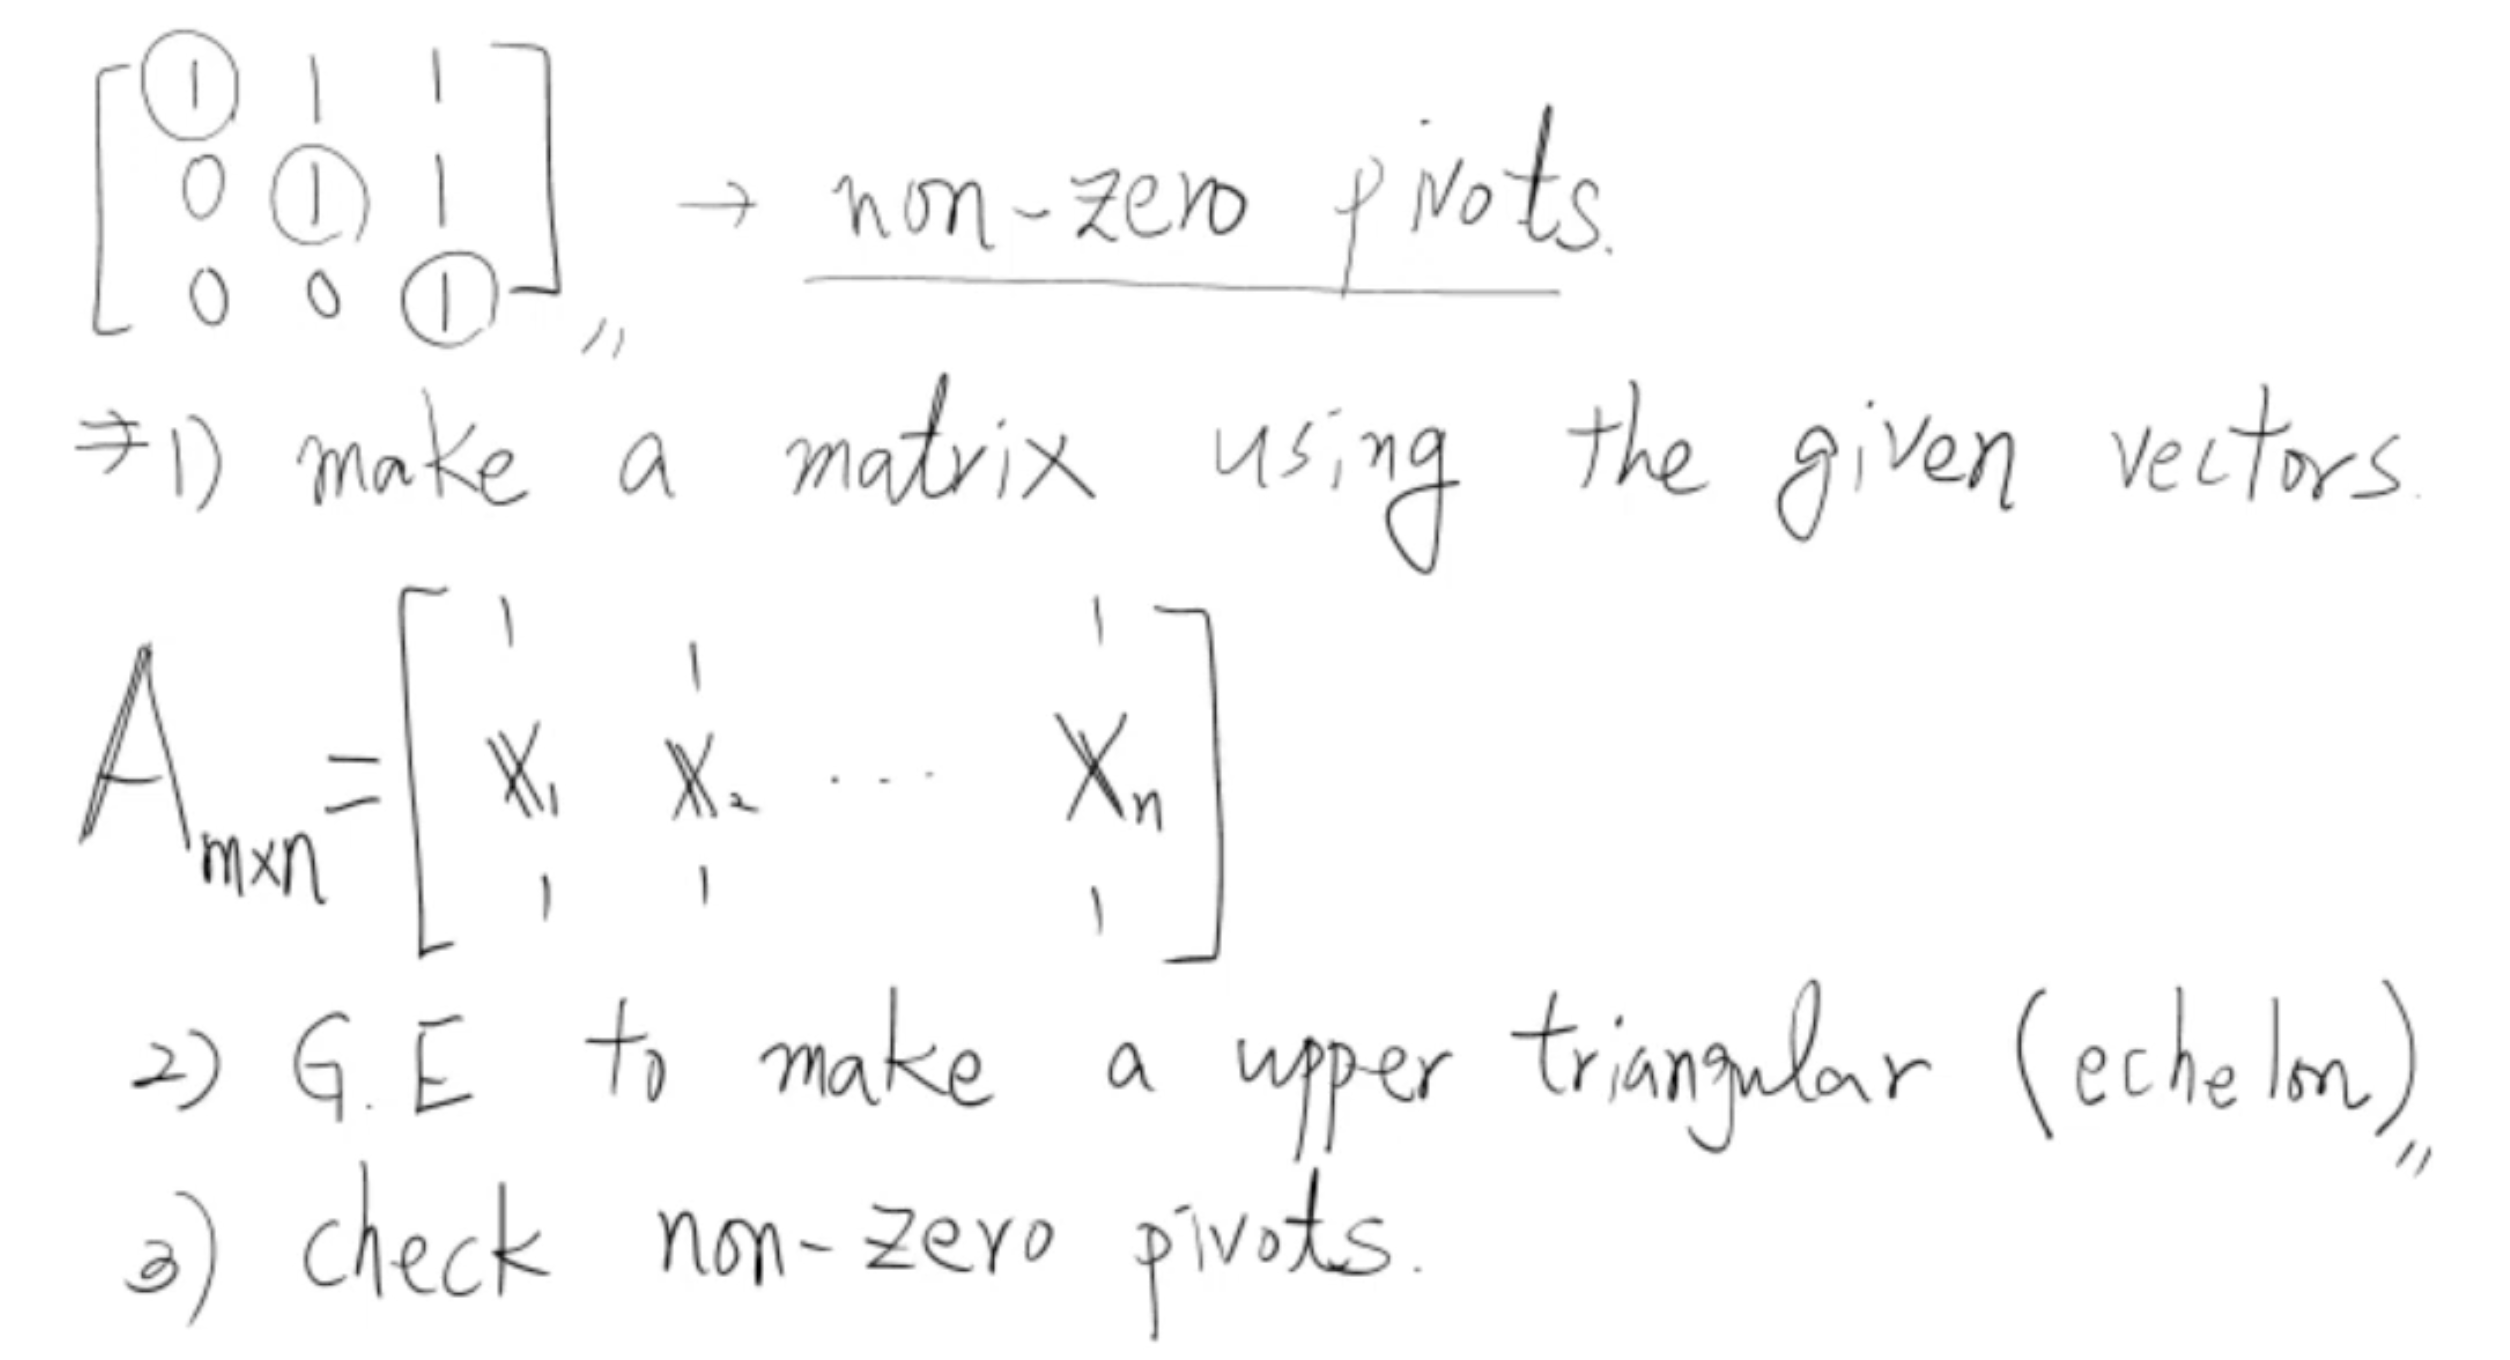 [ 1 1 1
0 1 1 → non-zero pivots.
0 0 1 ] ''
⇒ 1) make a matrix using the given vectors.
A m×n = [ x₁ x₂ ... xₙ ]
2) G.E to make a upper triangular (echelon) ''
3) check non-zero pivots.